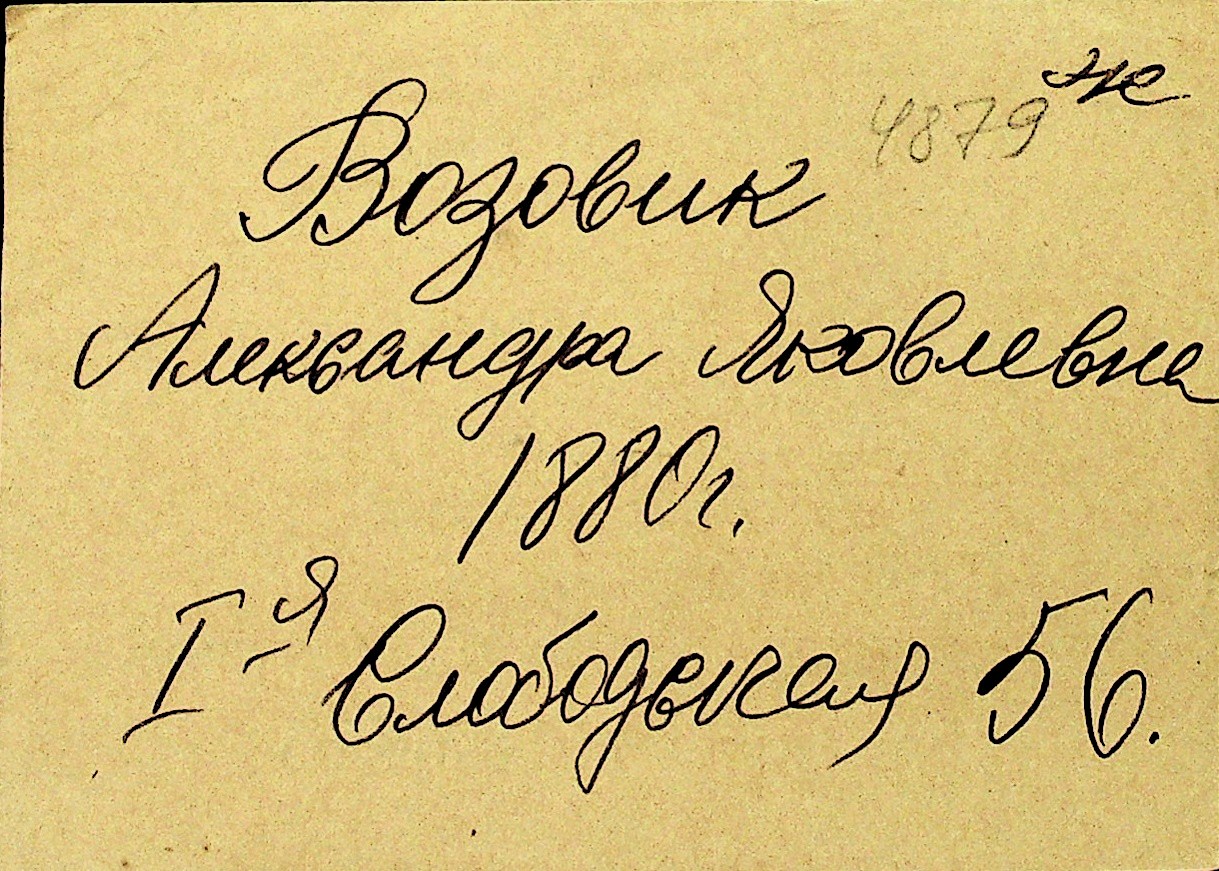 ж
4879
Возовик
Александра Яковлевна
1880г.
I-я Слободская 56.